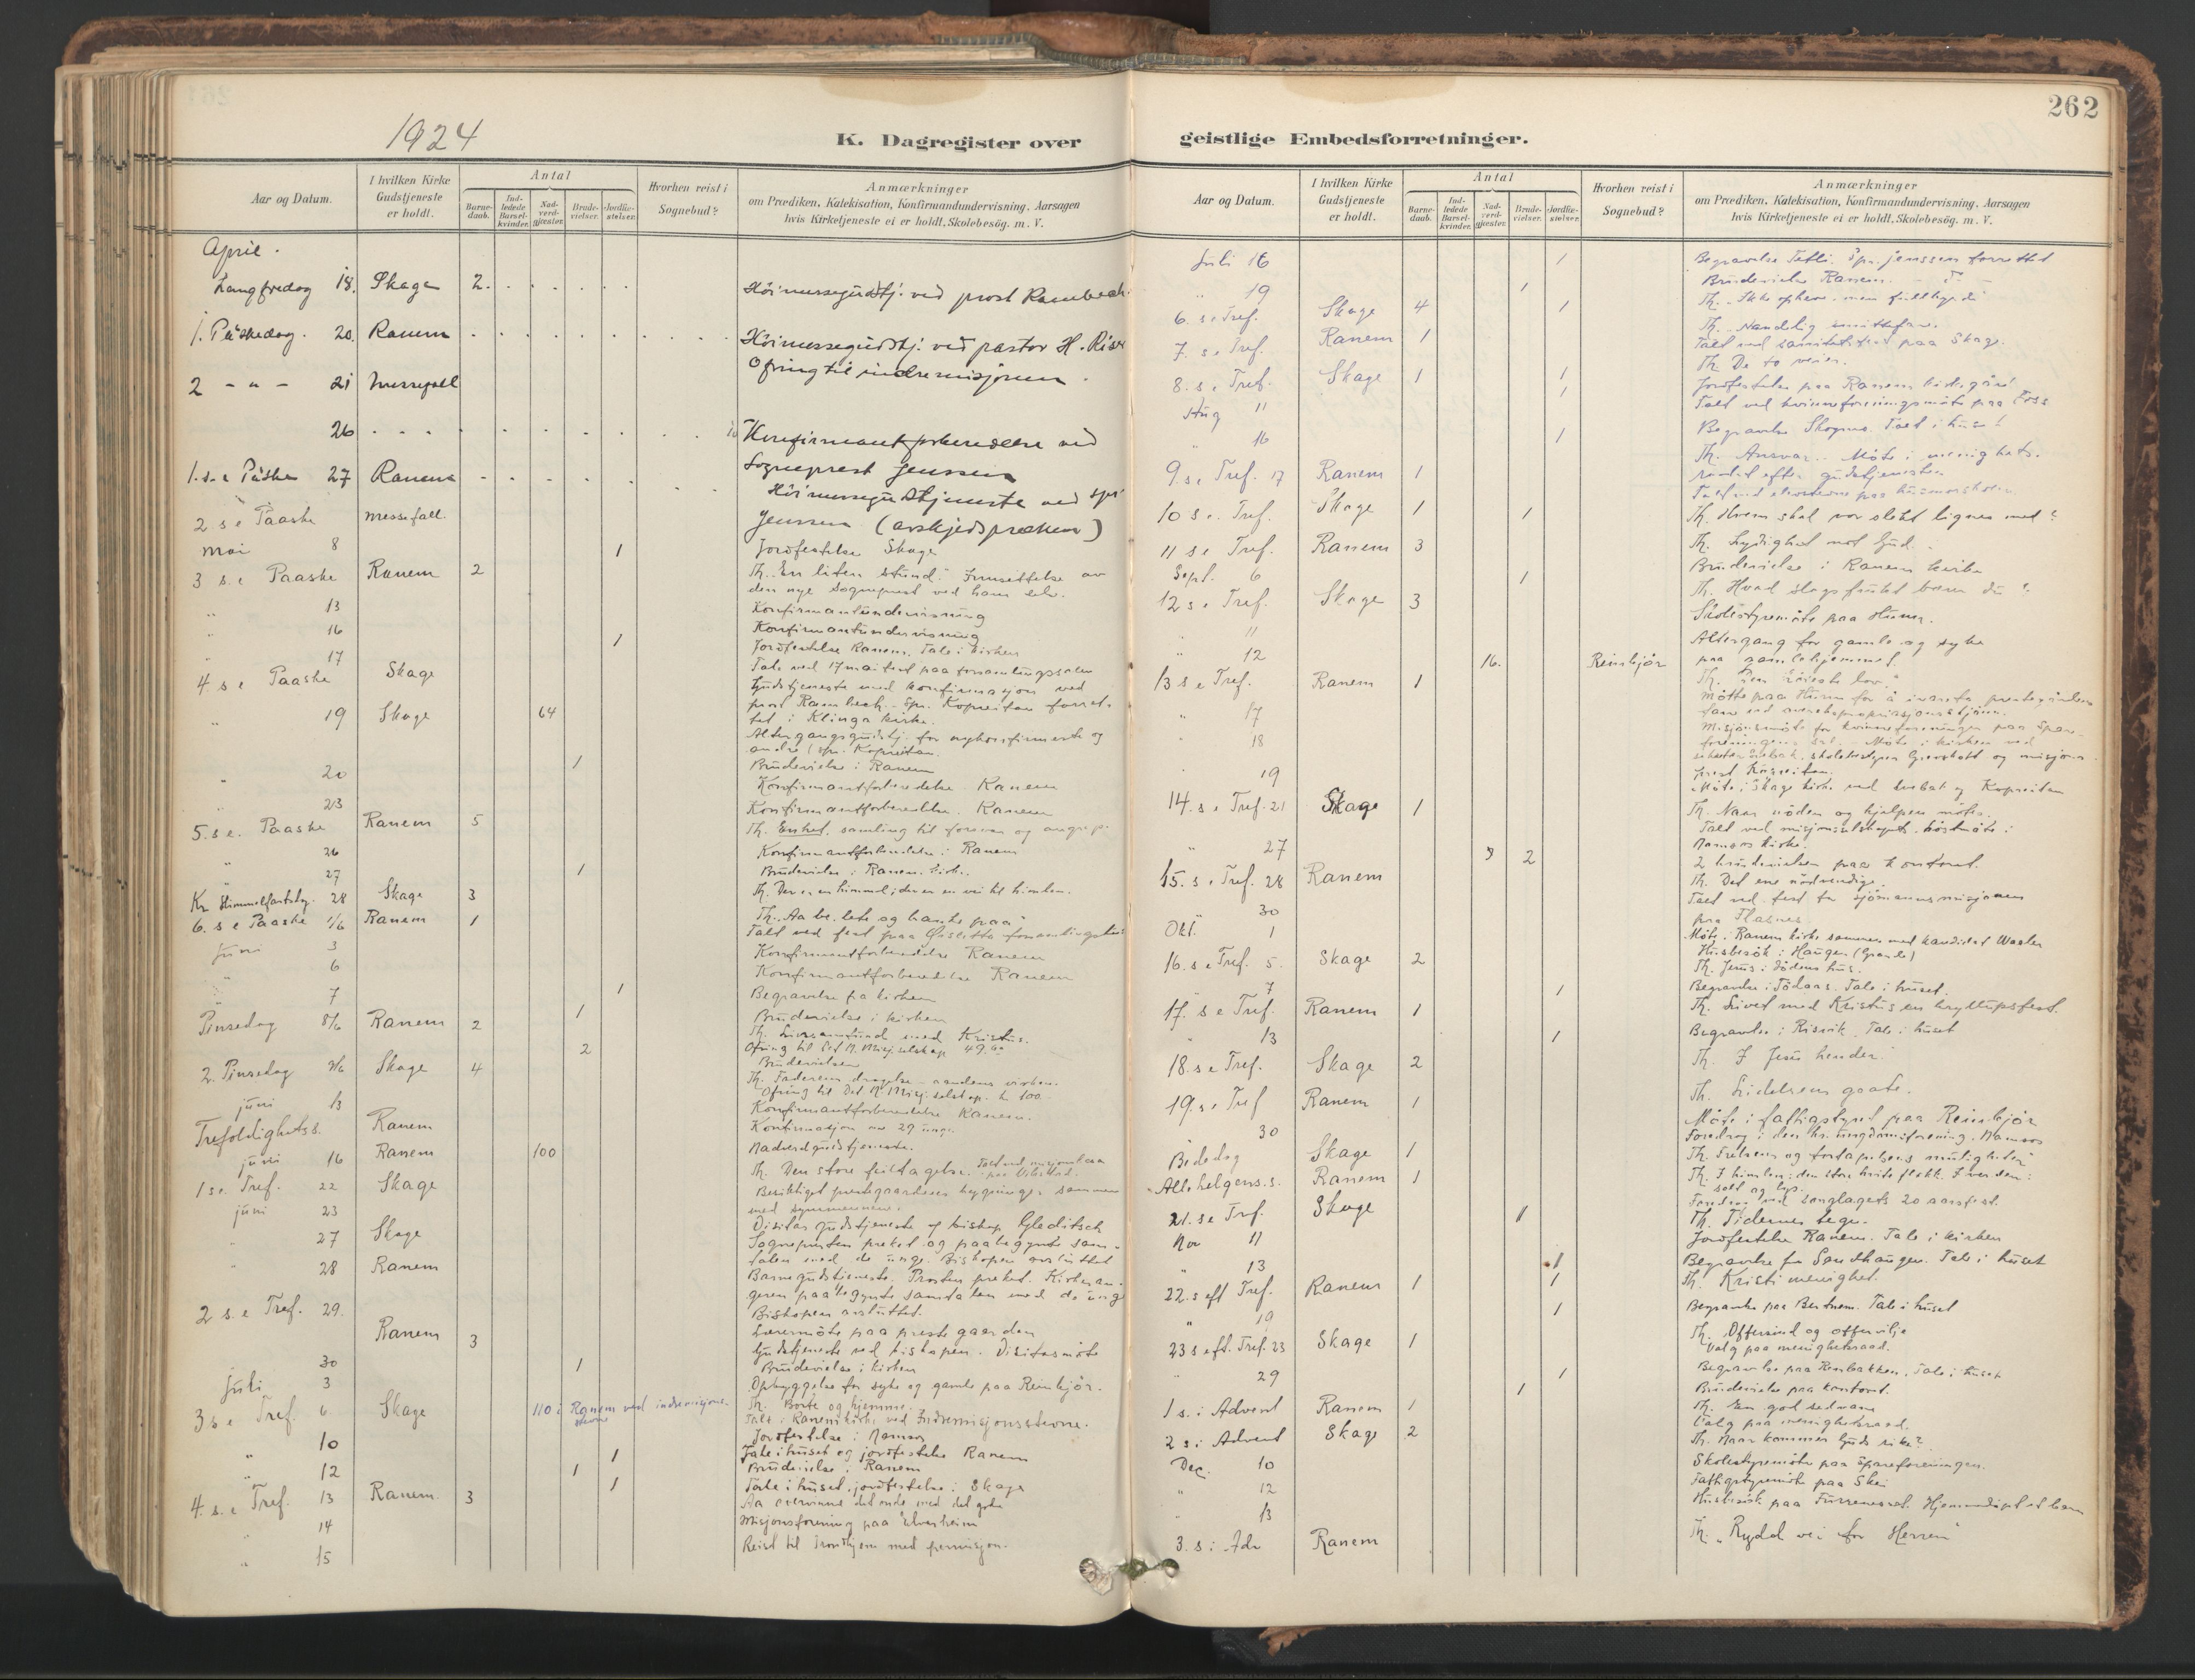 262
1924
K. Dagregister over geistlige Embedsforretninger.
Aar og Datum.
I hvilken Kirke Gudstjeneste er holdt.
Antal
Barne-daab.
Ind-ledede Barsel-kvinder.
Nad-verd-gjester.
Brude-vielser.
Jordfæ-stelser.
Hvorhen reist i Sognebud?
Anmærkninger
om Prædiken, Katekisation, Konfirmandundervisning, Aarsagen
hvis Kirketjeneste ei er holdt, Skolebesög. m. V.
April.
Langfredag 18. Skage 2. Höimessegudstj. ved prost Rambech.
1. Påskedag. 20. Ranem Höimessegudstj. ved pastor H.
Ofring til indremisjonen.
2 - " - 21 Messefall
26 Konfirmantforberedelse ved
Sogneprest Jenssen
1. s. e Påske 27 Ranem Höimessegudstjeneste ved spr
Jenssen (avskjedspræken)
2 s e Paaske messefall.
Mai 8 1 Jordfestelse Skage
3 s. e Paaske Ranem 2 Th. En liten stund. Innsettelse av
den nye sogneprest ved ham selv.
" 13 Konfirmantundervisning
" 16 Konfirmantundervisning
1 Jordfestelse Ranem. Tale i kirken
" 17 Tale ved 17 mai fest paa forsamlingssalen
4 s e Paaske Skage Gudstjeneste med konfirmasjon ved
prost Rambech. Spr. Kopreitan forret-
tet i Klinga kirke.
" 19 Skage 64 Altergangsgudstj. for nykonfirmerte og
andre (spr. Kopreitan.
1 Brudevielse i Ranem
" 20 Konfirmantforberedelse Ranem
" 23 Konfirmantforberedelse. Ranem
5. s e. Paaske Ranem 5 Th. Enhet, samling til forsvar og angrep.
" 26 Konfirmantforberedelse i Ranem
" 27 1 Brudevielse i Ranem kirke.
Kr Himmelfartsdg. 28 Skage 3 Th. Der er en himmel; der er en vei til himlen.
6. s e Paaske 1/6 Ranem 1
Juni 3 Konfirmantforberedelse Ranem
" 6 Konfirmantforberedelse Ranem
" 7 1 Begravelse fra kirken
1 Brudevielse i kirken
Pinsedag 8/6 Ranem 2 Th. Livssamfund med Kristus.
2 Brudevielser
2. Pinsedag 9/6 Skage 4
Juni 13 Konfirmantforberedelse Ranem.
Trefoldighetss. Ranem Konfirmasjon av 29 unge.
Juni 16 Ranem 100 Nadverdgudstjeneste.
1 s e. Tref. 22 Skage Th. Den store feiltagelse.
Juni 23 Besiktiget prestegaardens bygninger sammen
med synsmennene.
" 27 Skage Visitas gudstjeneste af biskop Gleditsch
Sognepresten preket og paabegynte sam-
talen med de unge. Biskopen avsluttet
" 28 Ranem Barnegudstjeneste. Prosten preket. Kirkesan-
geren paabegynte samtalen med de unge
Biskopen avsluttet.
Lærermöte paa prestegaarden
2 s. e Tref. 29. Ranem 3 Gudstjeneste ved biskopen. Visitasmöte
30 1 Brudevielse i kirken
Juli 3 Opbyggelse for syke og gamle paa Reinbjör.
3 s e Tref. 6 Skage 110 i Ranem ved indremisjons-
stevne
Th. Borte og hjemme.
Tale i Ranem kirke ved Indremisjonsstevne.
Jordfestelse i Namsos
" 10 1 Tale i huset og jordfestelse Ranem
" 12 1 Brudevielse i Ranem
1 Tale i huset, jordfestelse i Skage
4. s. e Tref. 13 Ranem 3 Aa overvinne det onde med det gode
" 14 Misjonsforening paa Elvarheim
" 15 Reist til Trondhjem med permisjon.
Juli 16 1 Begravelse Spr. Jenssen forrettet
" 19 1 Brudevielse Ranem
6. s e Tref. Skage 4 1
7. s. e Tref. Ranem 1
Talt ved paa Skage.
8. s. e Tref. Skage 1 1 Th. De to veier.
Jordfestelse paa Ranem kirkegård
Aug 11 1 Talt ved kvinneforeningsmöte paa Foss
" 16 1 Begravelse Skogmo. Talt i huset
9. s. e Tref. 17 Ranem 1 Th. Ansvar. Möte i menighets-
raadet efter gudstjenesten
10 s e. Tref. Skage 1 1 Th. Hvem skal vor slekt lignes med?
11 s e Tref. Ranem 3 Th. Lydighet mot Gud.
Sept. 6 1 Brudevielse i Ranem kirke
12 s e Tref. Skage 3 Th. Hvad slags frukt bærer du?
" 11 Skolestyremöte paa Hunn.
" 12 16. Reinbjör Altergang for gamle og syke
paa gamlehjemmet.
13 s e Tref. Ranem 1
" 17
" 18 Misjonsmöte for kvinneforeningen paa Spare-
foreningens sal. Möte i kirken ved
" 19 Möte i Skage kirke ved og Kopreitan
14. s. e Tref. 21 Skage 1 Th. Naar nöden og hjelpen mötes.
Talt ved misjonsselskapets höstmöte i
Namsos kirke.
" 27 2 2 brudevielser paa kontoret.
15. s. e Tref. 28 Ranem Th. Det ene nödvendige.
" 30 Talt ved fest for sjömannsmisjonen
paa Flasnes
Okt. 1 Möte i Ranem kirke sammen med kandidat
Husbesök i Haugen (Grande)
16. s e Tref. 5. Skage 2 Th. Jesus i dödens hus.
" 7 1 Begravelse i Tödaas. Tale i huset.
17. s e Tref. Ranem 1 Th. Livet med Kristus en bryllupsfest.
" 13 1 Begravelse i Risvik. Tale i huset
18. s e Tref. Skage 2 Th. I Jesu hender.
19. s. e Tref Ranem 1 Th. Lidelsens gaate.
30 Möte i fattigstyret paa Reinbjör
Foredrag i den kr. ungdomsforening. Namsos
Bededag Skage 1 Th. Frelsens og fortapelsens muligheter
Allehelgens. s. Ranem 1 Th. I himlen: den store hvite flokk. I verden:
salt og lys.
Foredrag ved sanglagets 20 aarsfest.
21. s e Tref. Skage 1 Th. Tidernes tegn.
Nov 11 Jordfestelse Ranem. Tale i kirken
" 13 1 Begravelse fra Sandhaugen. Tale i huset
22. s eft Tref. Ranem 1 1 Th. Kristi menighet.
" 19 1 Begravelse paa Bertnem. Tale i huset
23 s eft. Tref. 23 Skage 1 Th. Offersind og offervilje
Valg paa menighetsraad.
" 29 1 Begravelse paa Tale i huset
1 Brudevielse paa kontoret.
1 s. i Advent Ranem 1 Th. En god sedvane
Valg paa menighetsraad.
2 s. i Advent Skage 2 Th. Naar kommer Guds rike?
Dec. 10 Skolestyremöte paa Spareforeningen.
" 12 Fattigstyremöte paa Skei
" 13 Husbesök paa Hjemmedöpt et barn
3. s i Adv Ranem Th. "Rydd vei for Herren"